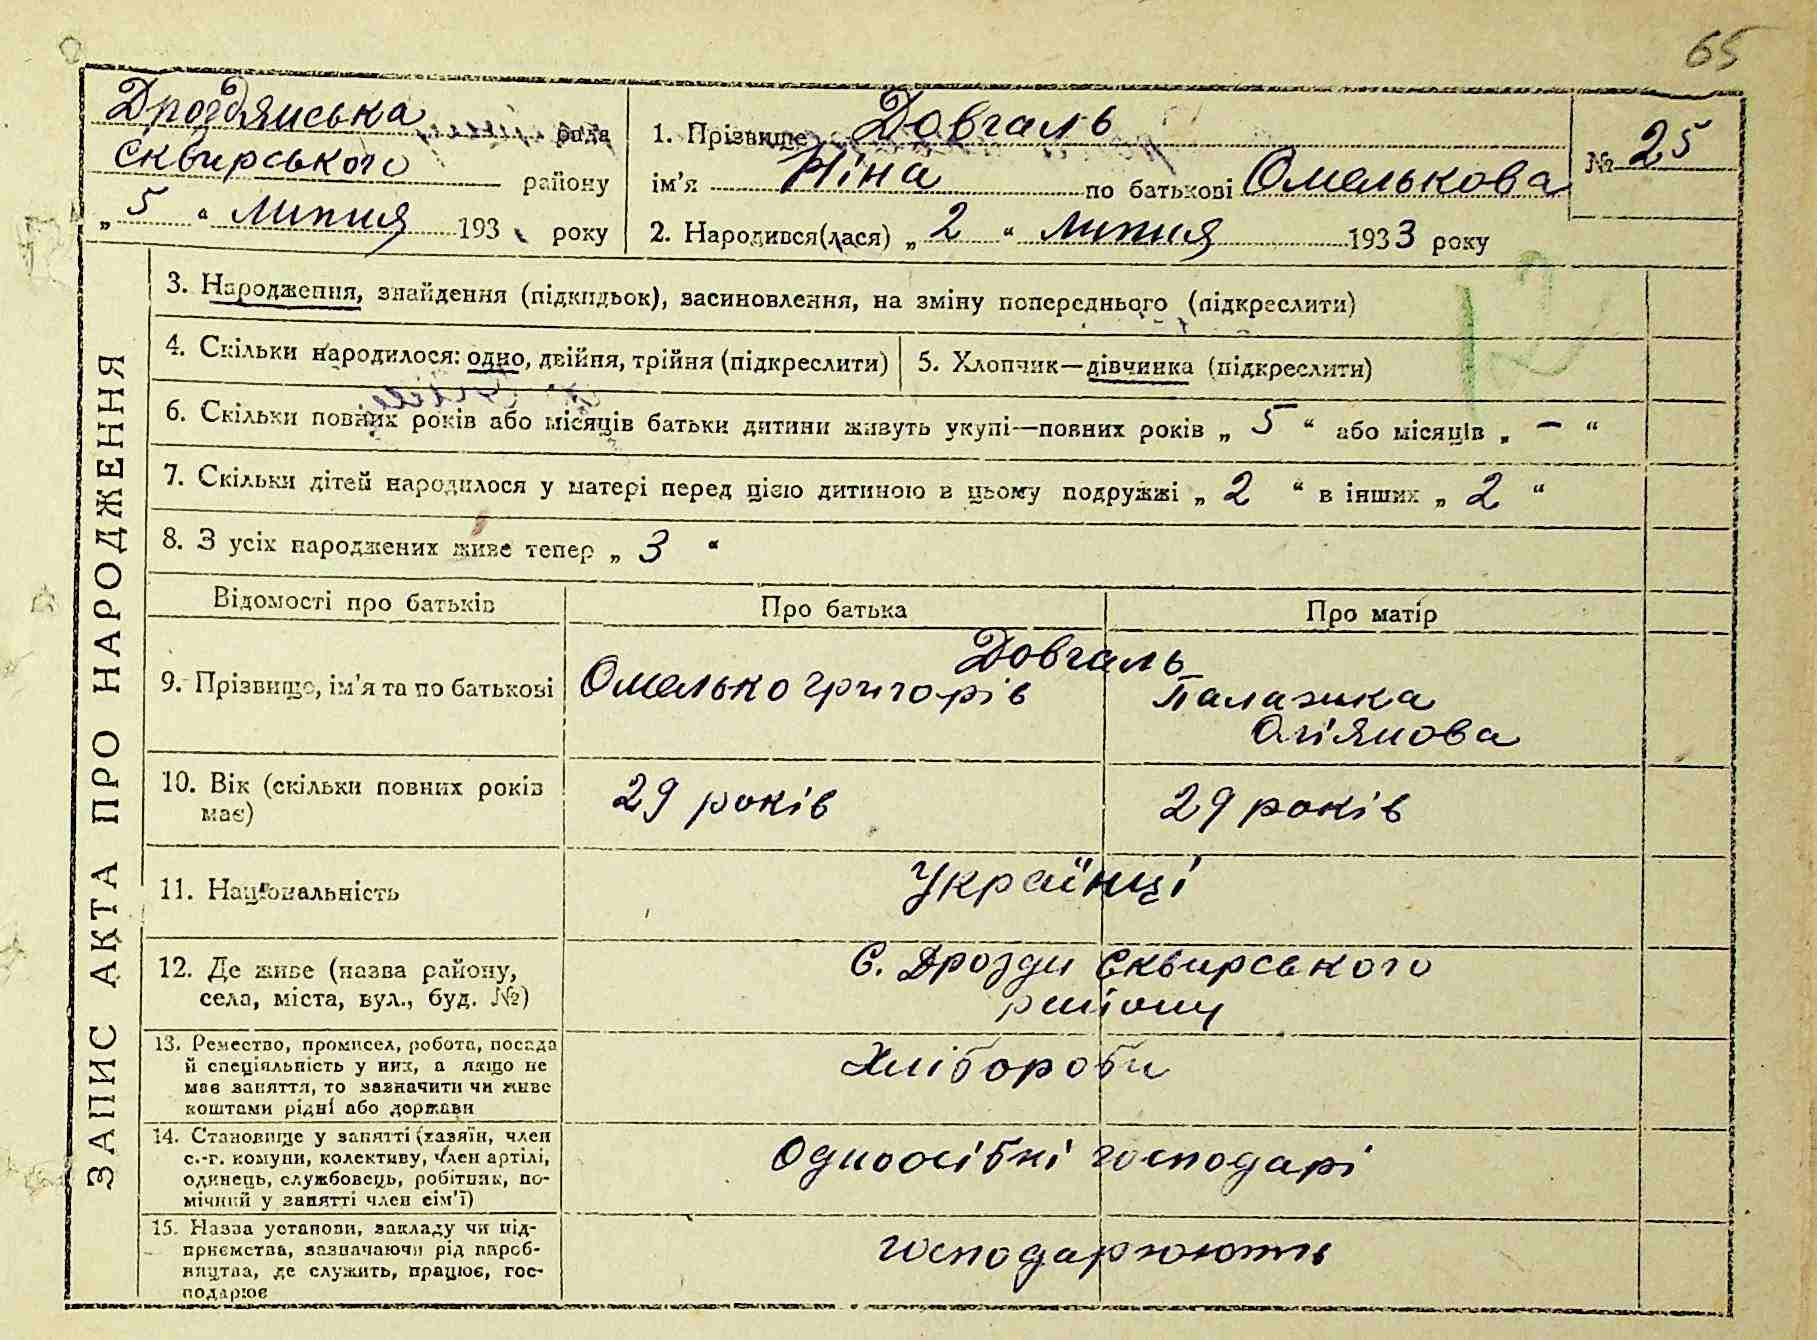 65
Дрозд'янська рада
Сквирського району
„ 5 “ липня 193 року
1. Прізвище Довгаль
ім'я Ніна по батькові Омелькова
2. Народився(лася) „ 2 “ липня 1933 року
№ 25
12
ЗАПИС АКТА ПРО НАРОДЖЕННЯ
3. Народження, знайдення (підкидьок), засиновлення, на зміну попереднього (підкреслити)
4. Скільки народилося: одно, двійня, трійня (підкреслити)
5. Хлопчик—дівчинка (підкреслити)
6. Скільки повних років або місяців батьки дитини живуть укупі—повних років „ 5 “ або місяців „ – “
7. Скільки дітей народилося у матері перед цією дитиною в цьому подружжі „ 2 “ в інших „ 2 “
8. З усіх народжених живе тепер „ 3 “
Відомості про батьків
Про батька
Про матір
9. Прізвище, ім'я та по батькові
Довгаль
Омелько Григорів
Палажка
10. Вік (скільки повних років
має)
29 років
29 років
11. Національність
Українці
12. Де живе (назва району,
села, міста, вул., буд. №)
С. Дрозди Сквирського
району
13. Ремество, промисел, робота, посада
й спеціяльність у них, а якщо не
має заняття, то зазначити чи живе
коштами рідні або держави
Хлібороби
14. Становище у занятті (хазяїн, член
с.-г. комуни, колективу, член артілі,
одинець, службовець, робітник, по-
мічний у занятті член сім'ї)
Одноосібні господарі
15. Назва установи, закладу чи під-
приємства, зазначаючи рід вироб-
ництва, де служить, працює, гос-
подарює
господарюють